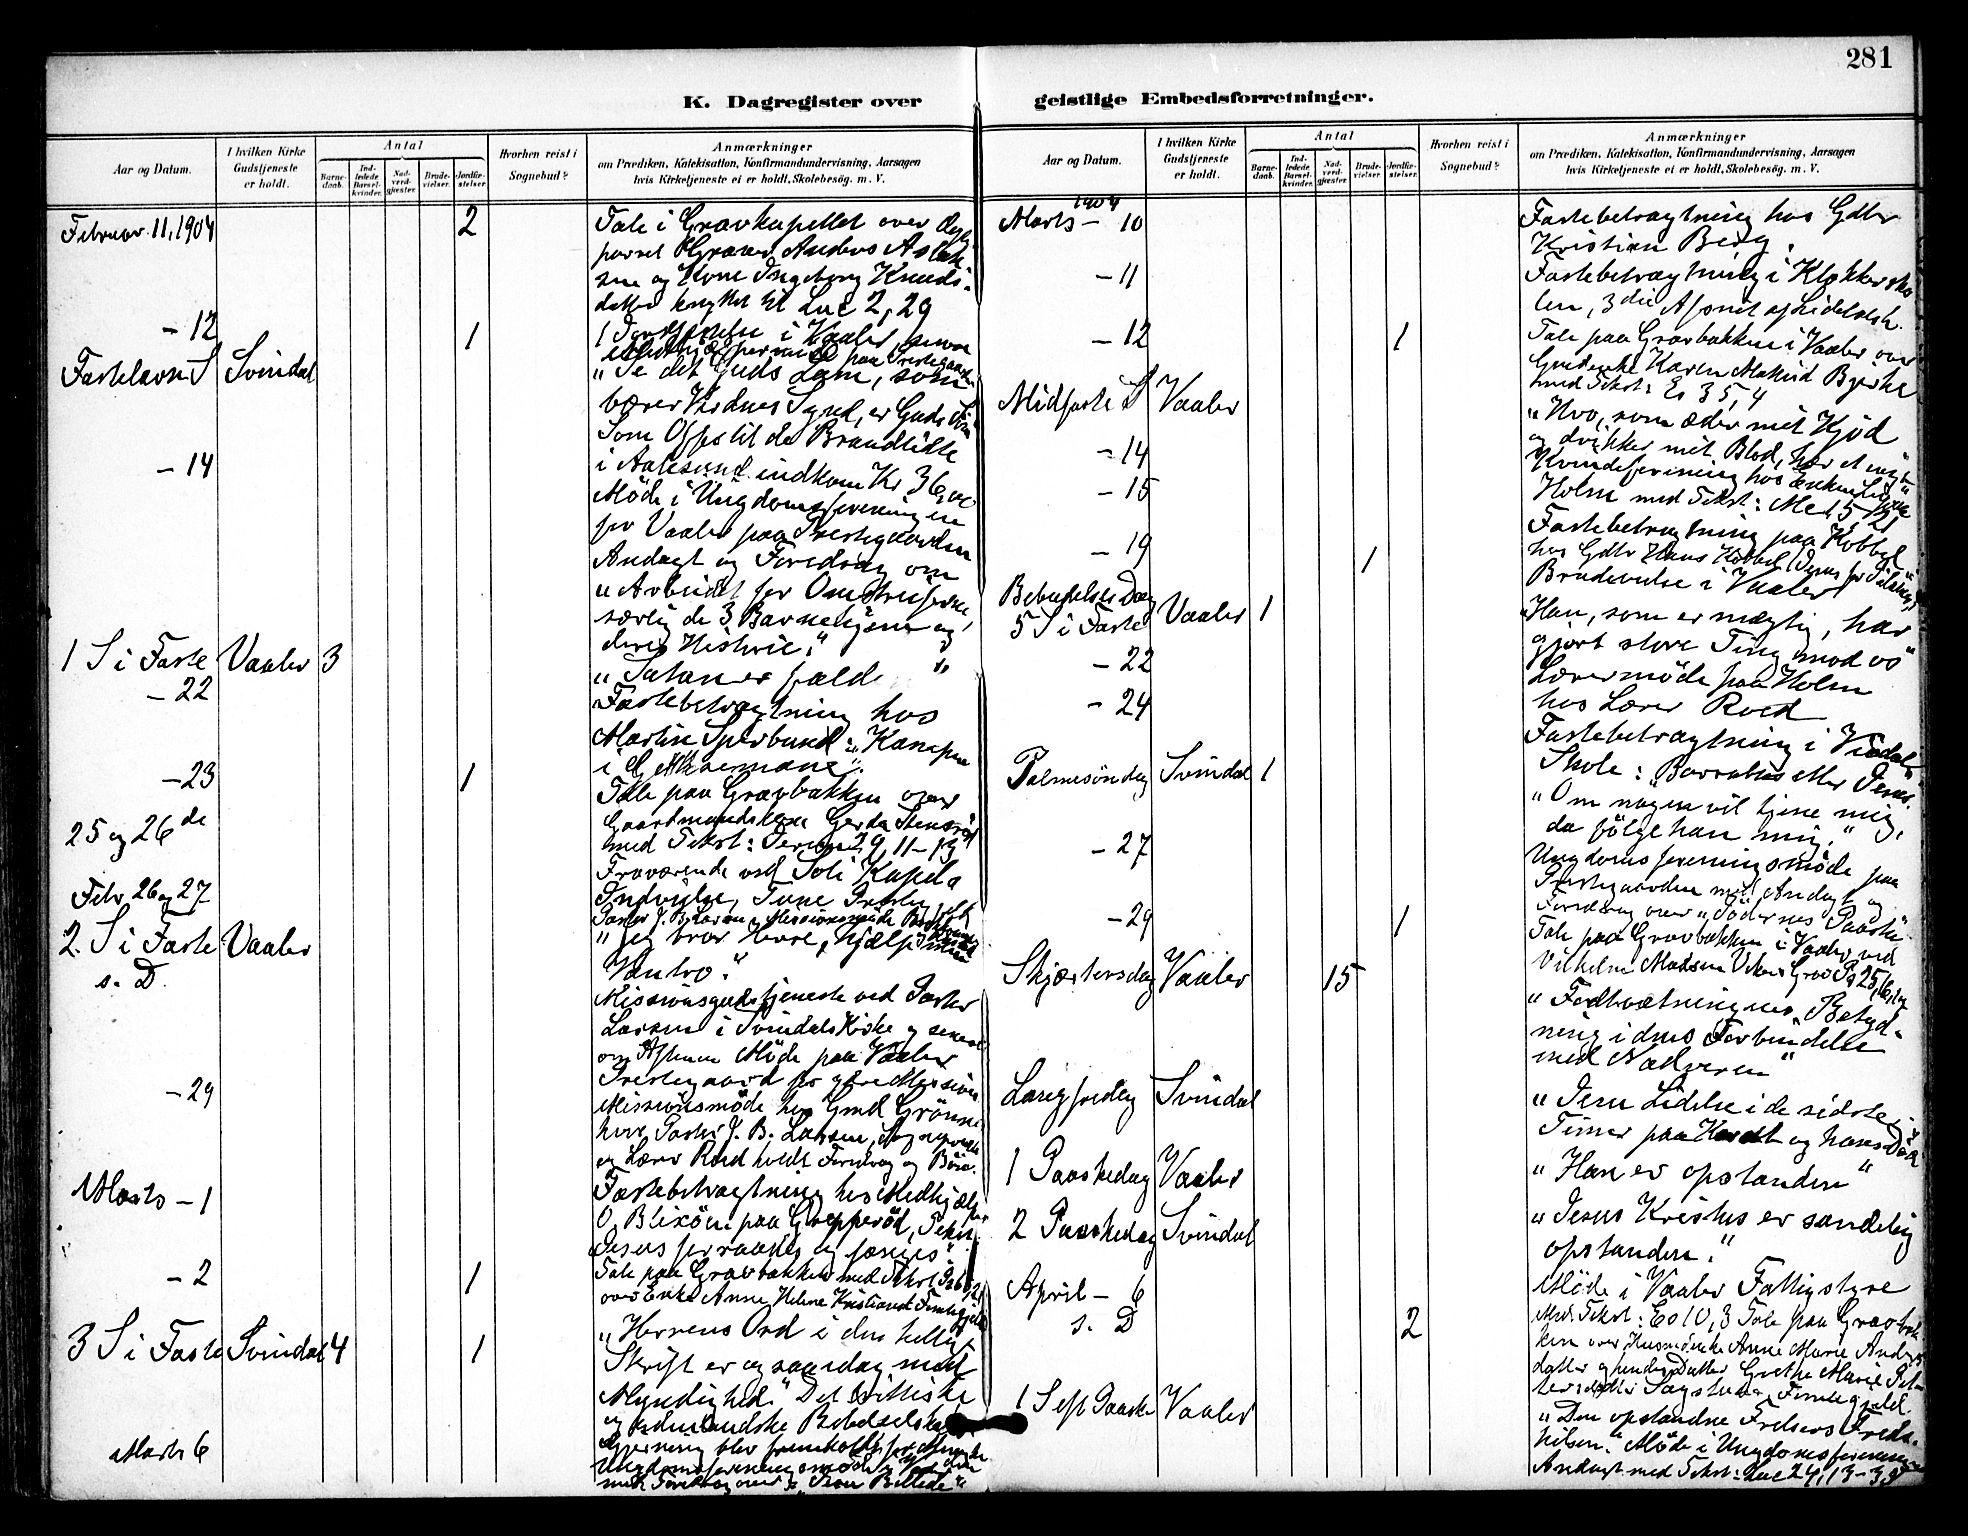 281
K. Dagregister over
geistlige Embedsforretninger.
Aar og Datum.
I hvilken Kirke Gudstjeneste er holdt.
Antal
Barnedaab.
Indledede Barselkvinder.
Nadverdgjæster
Brudevielser.
Jordfæstelser.
Hvorhen reist i Sognebud?
Anmærkninger
om Prædiken, Katekisation, Konfirmandundervisning, Aarsagen
hvis Kirketjeneste ei er holdt, Skolebesøg. m. V.
Februar 11, 1904 2
Tale i Gravkapellet over
Graver Anders
og Kone Ingeborg Knuds-
datter knyttet til Luc 2, 29
- 12 1
1 Jordfæstelse i Vaaler
Fastelavns S Svindal
"Se det Guds Lam, som
bærer Verdens Synd, er Guds Søn
Som Offer til de Brandlidte
i Aalesund indkom Kr 36,
- 14
Møde i Ungdomsforeningen
for Vaaler paa Prestegaarden
Andagt og Foredrag om
"Arbeidet for Omstreiferne,
særlig de 3 Barnehjem og
deres Historie."
1 S i Faste Vaaler 3
"Satans fald"
- 22
Fastebetragtning hos
Martin Sperbund: "Kampen
i Gethsemane".
- 23 1
Tale paa Gravbakken over
Gaardmandskone Gerda
med Tekst: Jerem 29, 11-13
25 og 26de
Fraværende ved Soli Kapels
Indvielse, Tune Prestegj
Febr 26 og 27
Pastor J. B. Larsen Missionsmøde
2. S i Faste Vaaler
"Jeg tror Herre, hjælp min
Vantro."
s. D.
Missionsgudstjeneste ved Pastor
Larsen i Svindals Kirke og senere
om Aftenen Møde paa Vaaler
Prestegaard for ydre Mission
- 29
Missionsmøde hos Gmd
hvor Pastor J. B. Larsen, Sognepresten
og Lærer Roed holdt Foredrag og Bøn.
Marts - 1
Fastebetragtning hos Medhjælper
O. Blixøen paa Grepperød, Tekst
Jesus forraades og fanges"
- 2 1
Tale paa Gravbakken med Tekst
over Enke Anne Helene Kristiansd
3 S i Faste Svindal 4 1
"Herrens Ord i den hellige
Skrift er og saa idag med
Myndighed." Det britiske
og udenlandske Bibelselskabs
Gjerning blev fremholdt
Marts 6
Ungdomsforeningsmøde
med Foredrag over
Aar og Datum.
I hvilken Kirke Gudstjeneste er holdt.
Antal
Barnedaab.
Indledede Barselkvinder.
Nadverdgjæster
Brudevielser.
Jordfæstelser.
Hvorhen reist i Sognebud?
Anmærkninger
om Prædiken, Katekisation, Konfirmandundervisning, Aarsagen
hvis Kirketjeneste ei er holdt, Skolebesøg. m. V.
1904
Marts - 10
Fastebetragtning hos Gdbr
Kristian Berg.
- 11
Fastebetragtning i Klokkersko
len, 3die Afsnit af Lidelsesh.
- 12 1
Tale paa Gravbakken i Vaaler over
Karen Mathild Bjerke
med Tekst: Es 35, 4
Midfaste S Vaaler
"Hvo, som æder mit Kjød
og drikker mit Blod, har et evigt
- 14
Kvindeforening hos Enken
Holm med Tekst:
- 15
Fastebetragtning paa Kobbel
hos Gdbr Hans Kobbel
- 19 1
Brudevielse i Vaaler
Bebudelses Dag
5 S i Faste Vaaler 1
"Han, som er mægtig, har
gjort store Ting mod os"
- 22
Lærermøde paa Holm
hos Lærer Roed
- 24
Fastebetragtning i
Skole: "Barrabas eller Jesus.
Palmesøndag Svindal 1
"Om nogen vil tjene mig,
da følge han mig."
- 27
Ungdomsforeningsmøde paa
Prestegaarden med Andagt og
Foredrag over "Jødernes Paaske"
- 29 1
Tale paa Gravbakken i Vaaler ved
Vilhelm Madsen Grav Ps 25,
Skjærtorsdag Vaaler 15
"Fodtvætningens Betyd-
ning i dens Forbindelse
med Nadveren"
Langfredag Svindal
"Jesu Lidelse i de sidste
Timer paa Korset og hans Død
1 Paaskedag Vaaler
"Han er opstanden"
2 Paaskedag Svindal
"Jesus Kristus er sandelig
opstanden."
April - 6
Møde i Vaaler Fattigstyre
s. D 2
Med Tekst: Es 10, 3 Tale paa Gravbak
ken over Anne Marie Anders
datter og hendes Datter Grethe Marie Pet-
1 S eft Paaske Vaaler
"Den opstandne Frelsers Freds-
hilsen." Møde i Ungdomsforeningen
Andagt med Tekst: Luc 24, 13-35